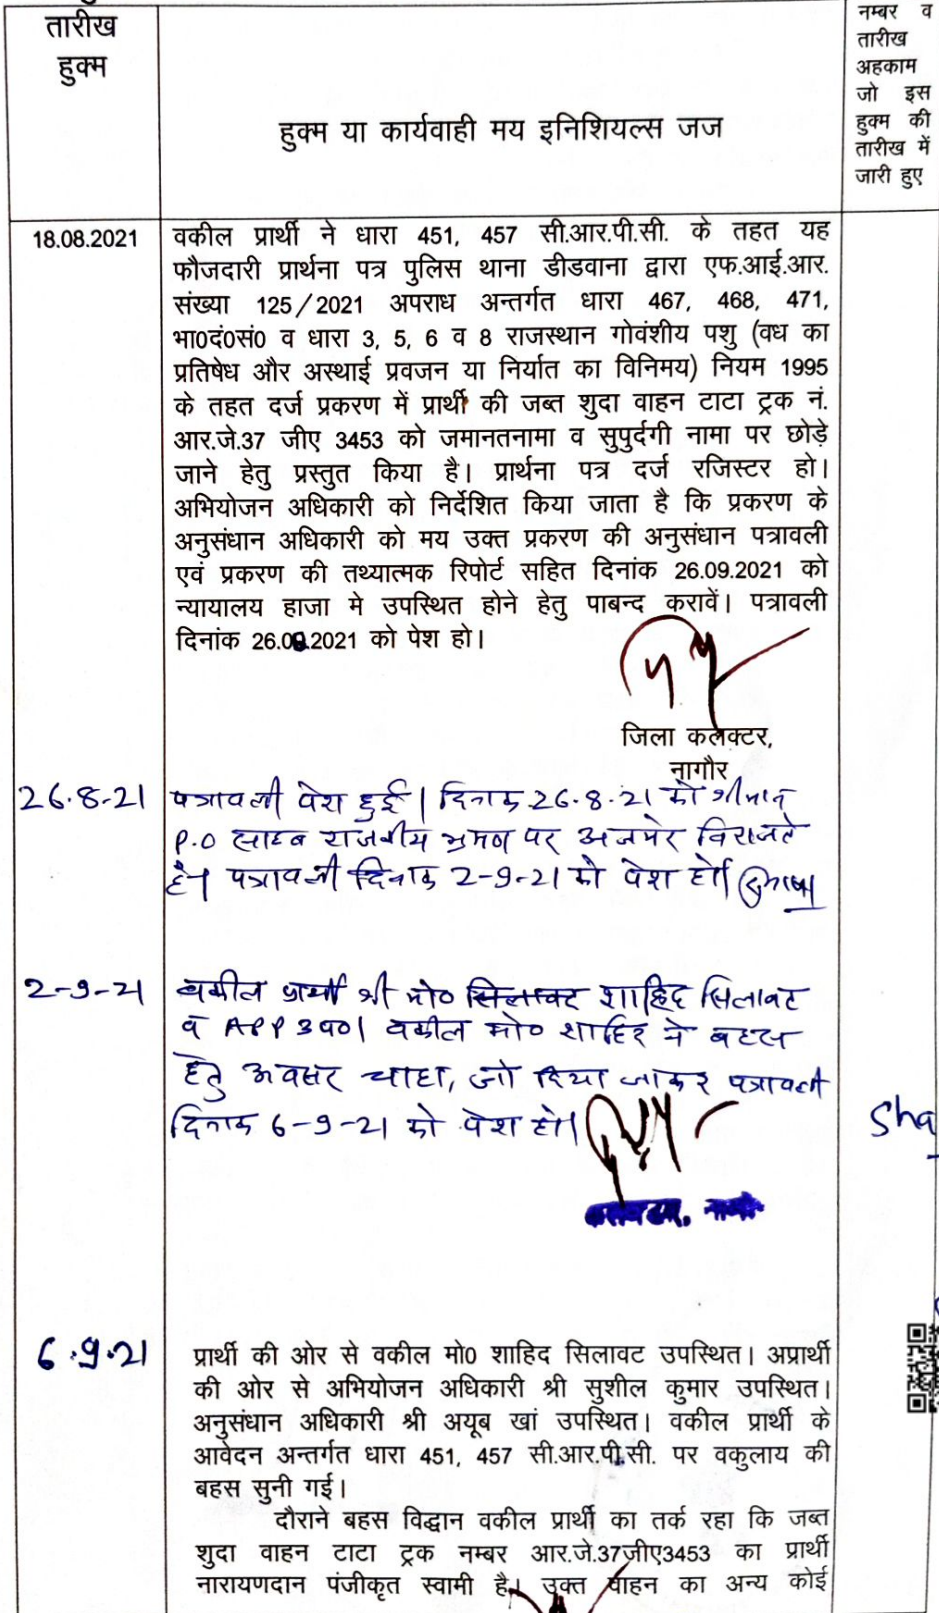 तारीख
हुक्म
हुक्म या कार्यवाही मय इनिशियल्स जज
नम्बर व
तारीख
अहकाम
जो इस
हुक्म की
तारीख में
जारी हुए
18.08.2021
वकील प्रार्थी ने धारा 451, 457 सी.आर.पी.सी. के तहत यह
फौजदारी प्रार्थना पत्र पुलिस थाना डीडवाना द्वारा एफ.आई.आर.
संख्या 125/2021 अपराध अन्तर्गत धारा 467, 468, 471,
भा0दं0सं0 व धारा 3, 5, 6 व 8 राजस्थान गोवंशीय पशु (वध का
प्रतिषेध और अस्थाई प्रवजन या निर्यात का विनिमय) नियम 1995
के तहत दर्ज प्रकरण में प्रार्थी की जब्त शुदा वाहन टाटा ट्रक नं.
आर.जे.37 जीए 3453 को जमानतनामा व सुपुर्दगी नामा पर छोड़े
जाने हेतु प्रस्तुत किया है। प्रार्थना पत्र दर्ज रजिस्टर हो।
अभियोजन अधिकारी को निर्देशित किया जाता है कि प्रकरण के
अनुसंधान अधिकारी को मय उक्त प्रकरण की अनुसंधान पत्रावली
एवं प्रकरण की तथ्यात्मक रिपोर्ट सहित दिनांक 26.09.2021 को
न्यायालय हाजा मे उपस्थित होने हेतु पाबन्द करावें। पत्रावली
दिनांक 26.08.2021 को पेश हो।
जिला कलेक्टर,
नागौर
26.8-21
पत्रावली पेश हुई। दिनाक 26.8.21 को श्रीमान
P.O साहब राजकीय भ्रमण पर अजमेर विराजते
है। पत्रावली दिनाक 2-9-21 को पेश हो।
2-9-21
वकील प्रार्थी श्री मो० सिलावट शाहिद सिलावट
व APP उप०। वकील मो० शाहिद ने बहस
हेतु अवसर चाहा, जो दिया जाकर पत्रावली
दिनाक 6-9-21 को पेश हो।
Sha
6.9.21
प्रार्थी की ओर से वकील मो0 शाहिद सिलावट उपस्थित। अप्रार्थी
की ओर से अभियोजन अधिकारी श्री सुशील कुमार उपस्थित।
अनुसंधान अधिकारी श्री अयूब खां उपस्थित। वकील प्रार्थी के
आवेदन अन्तर्गत धारा 451, 457 सी.आर.पी.सी. पर वकुलाय की
बहस सुनी गई।
दौराने बहस विद्धान वकील प्रार्थी का तर्क रहा कि जब्त
शुदा वाहन टाटा ट्रक नम्बर आर.जे.37जीए3453 का प्रार्थी
नारायणदान पंजीकृत स्वामी है। उक्त वाहन का अन्य कोई